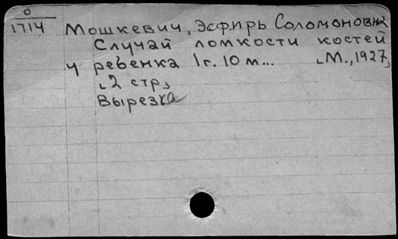 О
1714
Мошкевич, Эсфирь Соломоновна
Случай ломкости костей
у ребенка 1г. 10 м... [М., 1927]
[2 стр]
Вырезка